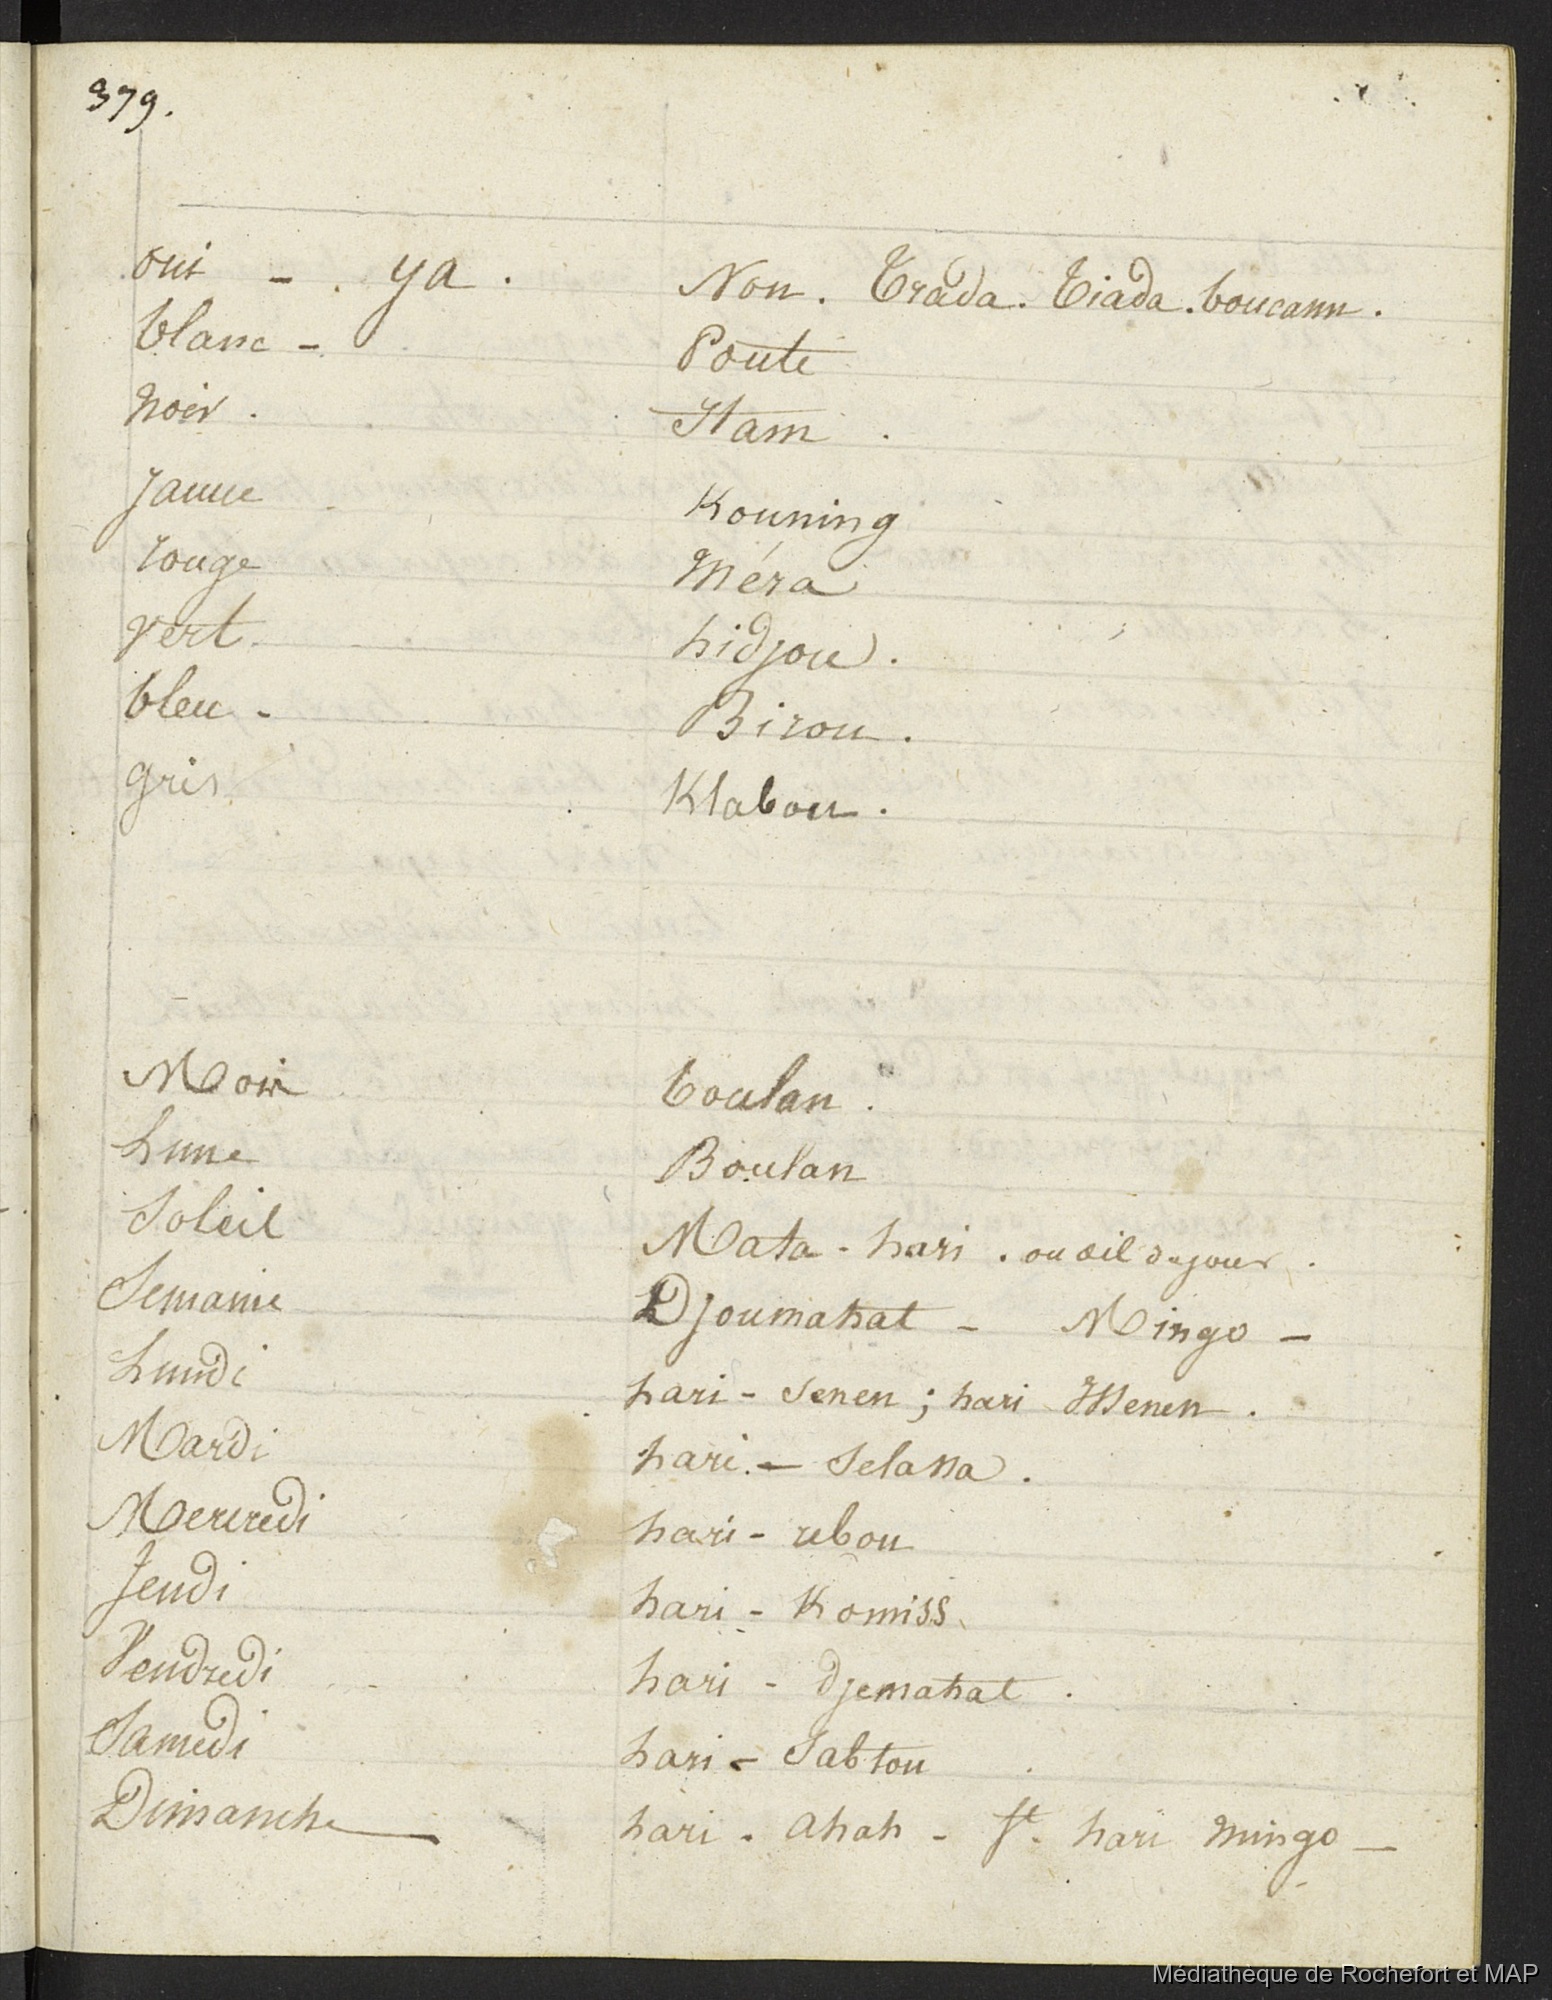 379.
oui - . ya . Non . Trada . Tiada . boucann .
blanc - Pouti
noir . Itam .
jaune Kouning
rouge Méra
vert . hidjou .
bleu - Birou .
gris Klabou .
Mois boulan .
Lune Boulan
Soleil Mata - hari . ou œil du jour .
Semaine Djoumahat - Mingo -
Lundi hari - Senen ; hari Issenen .
Mardi hari . - Selassa .
Mercredi hari - rebou
Jeudi hari - Komiss
Vendredi hari - djemahat .
Samedi hari - Sabtou
Dimanche hari - ahah - hari mingo -
Médiathèque de Rochefort et MAP